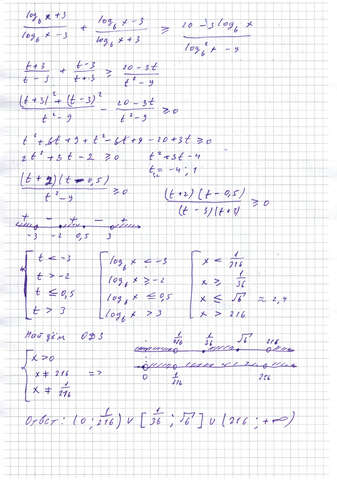 (log₆x+3)/(log₆x−3) + (log₆x−3)/(log₆x+3) ≥ (20−3log₆x)/(log₆²x−9)
(t+3)/(t−3) + (t−3)/(t+3) ≥ (20−3t)/(t²−9)
((t+3)²+(t−3)²)/(t²−9) − (20−3t)/(t²−9) ≥ 0
t²+6t+9+t²−6t+9−20+3t ≥ 0
2t²+3t−2 ≥ 0 t²+3t−4
t₁,₂ = −4; 1
((t+2)(t−0,5))/(t²−9) ≥ 0 ((t+2)(t−0,5))/((t−3)(t+3)) ≥ 0
+ − + − +
−3 −2 0,5 3
t < −3 log₆x < −3 x < 1/216
t > −2 log₆x ≥ −2 x ≥ 1/36
t ≤ 0,5 log₆x ≤ 0,5 x ≤ √6 ≈ 2,4
t > 3 log₆x > 3 x > 216
Найдём ОДЗ 1/216 1/36 √6 216
x>0
x ≠ 216 =>
x ≠ 1/216 0 1/216 216
Ответ: (0; 1/216) ∪ [1/36; √6] ∪ (216; +∞)